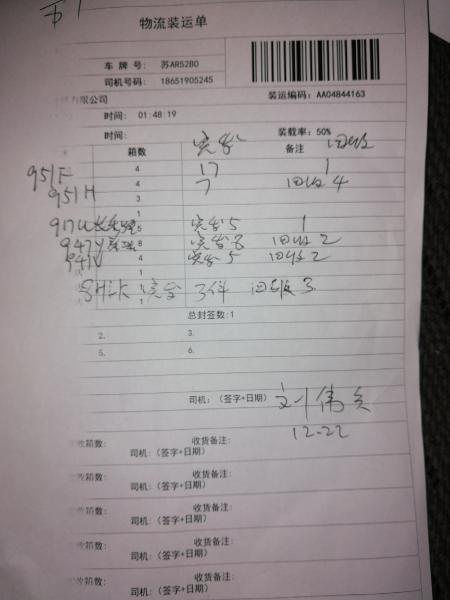 物流装运单
车 牌 号: 苏AR52B0
司机号码: 18651905245
有限公司
装运编码: AA04844163
时间: 01:48:19
时间:
装载率: 50%
箱数 完好 备注 回收
951F 4 17 1
951H 4 7 回收 4
3
1
5 完好 5 1
947Y 8 完好 8 回收 2
947V 4 完好 5 回收 2
1
完好 3件 回收 3
1
总封签数:1
2. 3.
5. 6.
司机: (签字+日期) 刘伟
12-22
收箱数: 收货备注:
司机: (签字+日期)
收箱数: 收货备注:
司机: (签字+日期)
收箱数: 收货备注:
司机: (签字+日期)
收箱数: 收货备注:
司机: (签字+日期)
收箱数: 收货备注:
司机: (签字+日期)